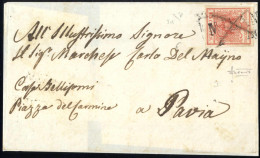 All'Illustrissimo Signore
Il Sig.r Marchese Carlo Del Mayno
Casa Bellisomi
Piazza del Carmine
a Pavia